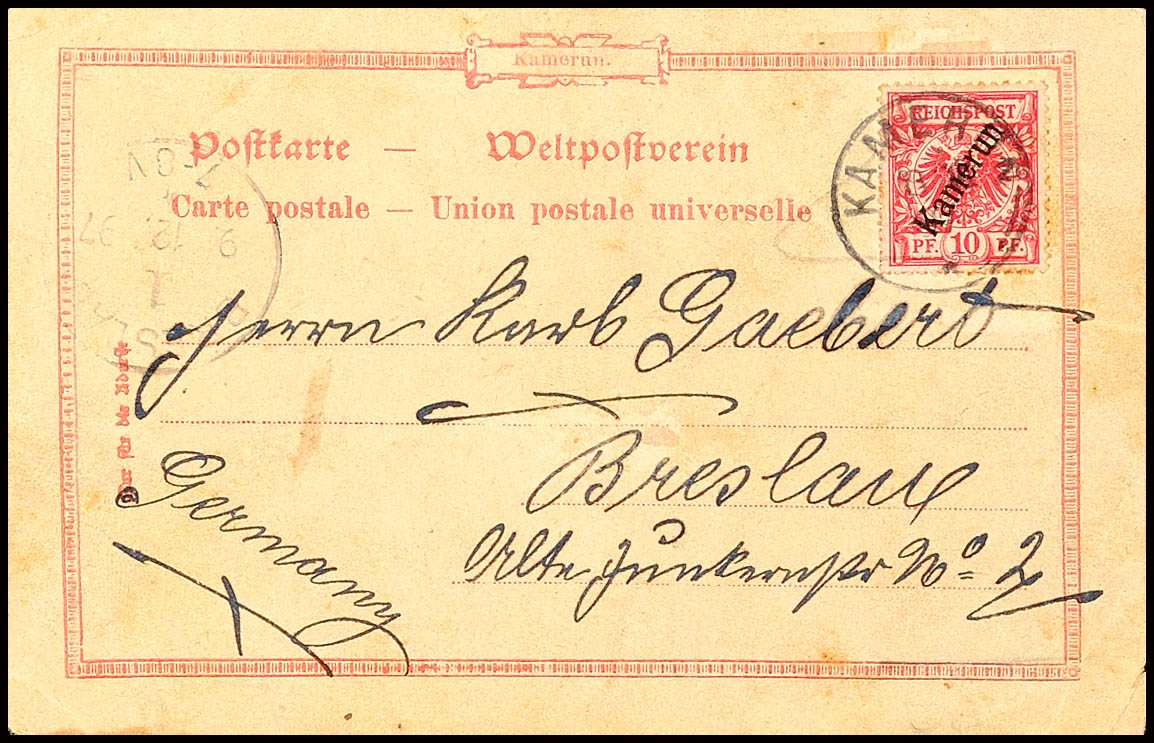 Kamerun.
Postkarte — Weltpostverein
Carte postale — Union postale universelle
REICHSPOST
Kamerun
PF. 10 PF.
KAMERUN
9 12 97
Nur für die Adresse
Herrn Karl Gaebert
Breslau
Alte Junkernstr No. 2
Germany